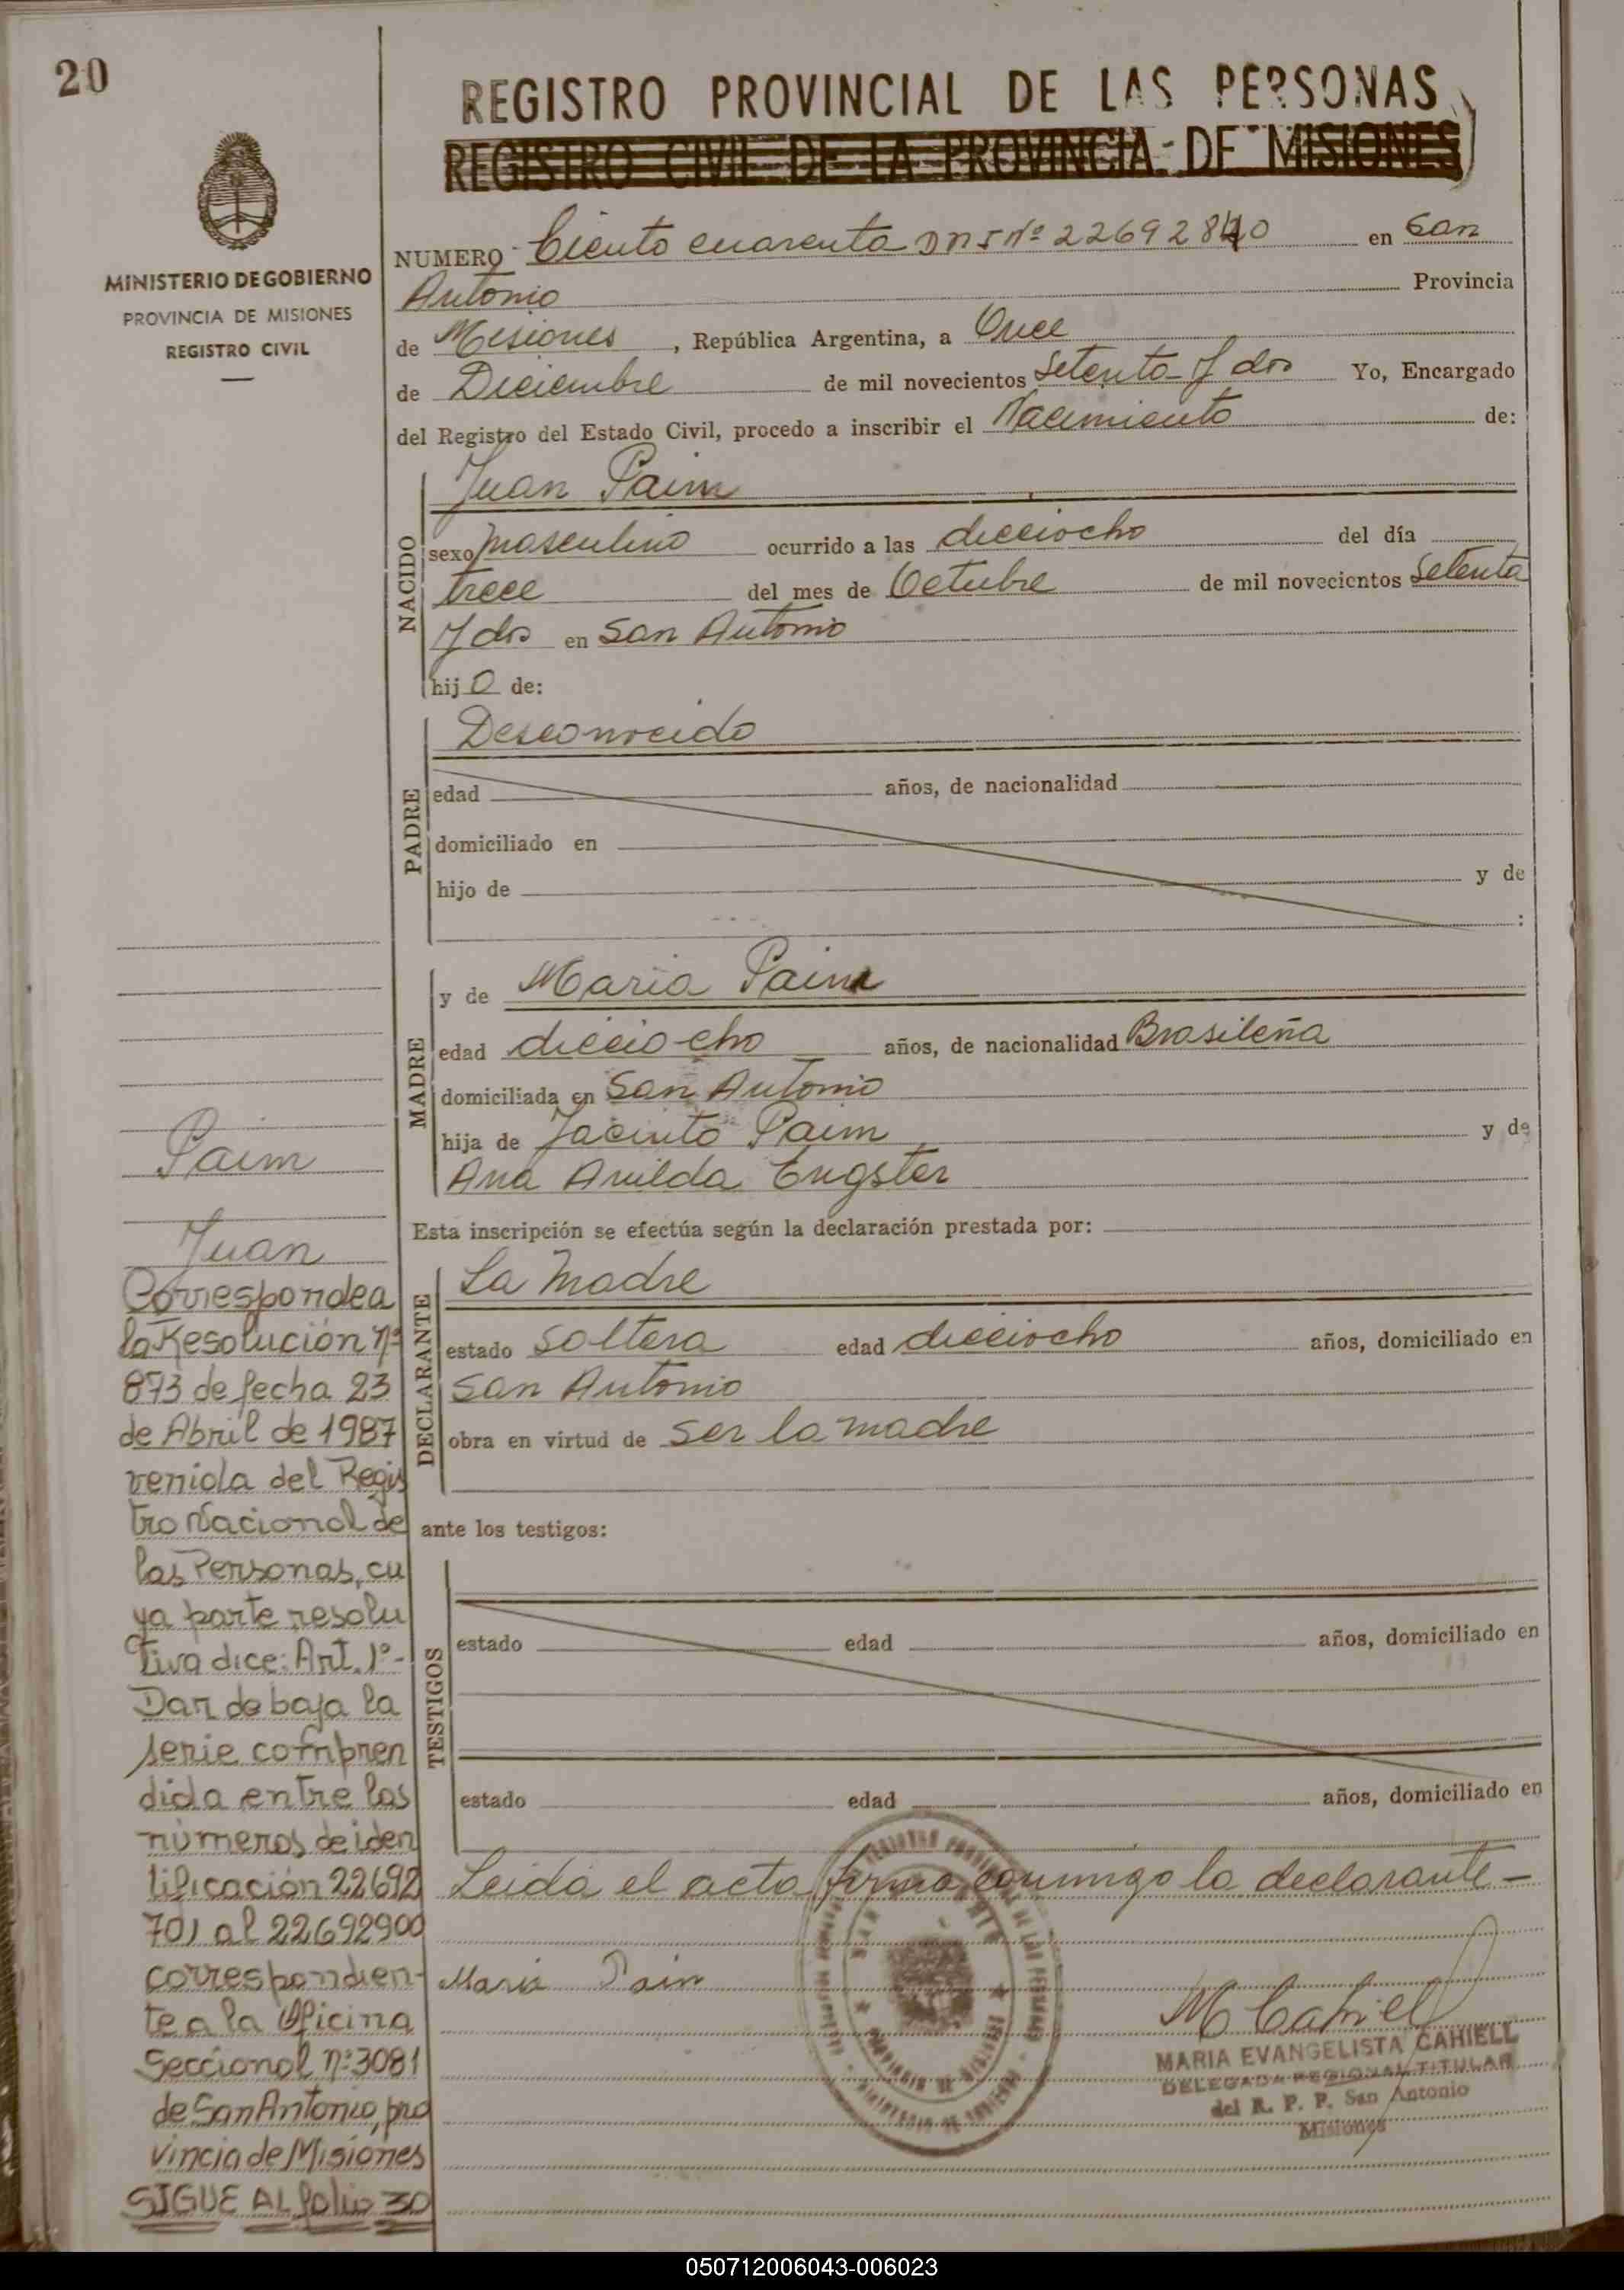 20
REGISTRO PROVINCIAL DE LAS PERSONAS
REGISTRO CIVIL DE LA PROVINCIA DE MISIONES
MINISTERIO DE GOBIERNO
PROVINCIA DE MISIONES
REGISTRO CIVIL
NUMERO Ciento cuarenta DNI Nº 22692840 en San
Antonio Provincia
de Misiones, República Argentina, a Once
de Diciembre de mil novecientos Setenta y dos Yo, Encargado
del Registro del Estado Civil, procedo a inscribir el Nacimiento de:
NACIDO
Juan Paim
sexo masculino ocurrido a las dieciocho del día
trece del mes de Octubre de mil novecientos Setenta
y dos en San Antonio
hijo de:
PADRE
Desconocido
edad años, de nacionalidad
domiciliado en
hijo de y de
:
MADRE
y de Maria Paim
edad dieciocho años, de nacionalidad Brasileña
domiciliada en San Antonio
hija de Jacinto Paim y de
Ana Anilda Engster
Esta inscripción se efectúa según la declaración prestada por:
DECLARANTE
La Madre
estado Soltera edad dieciocho años, domiciliado en
San Antonio
obra en virtud de ser la madre
ante los testigos:
TESTIGOS
estado edad años, domiciliado en
estado edad años, domiciliado en
Leida el acta firma conmigo la declarante-
Maria Paim
M Cahiell
MARIA EVANGELISTA CAHIELL
DELEGADA REGIONAL TITULAR
del R. P. P. San Antonio
Misiones
Paim
Juan
Corresponde a
la Resolución nº
873 de fecha 23
de Abril de 1987
venida del Regis
tro Nacional de
las Personas, cu
ya parte resolu
tiva dice: Art. 1º-
Dar de baja la
serie compren
dida entre los
números de iden
tificación 22692
701 al 22692900
correspondien-
te a la Oficina
Seccional nº 3081
de San Antonio, pro
vincia de Misiones
SIGUE AL folio 30
050712006043-006023